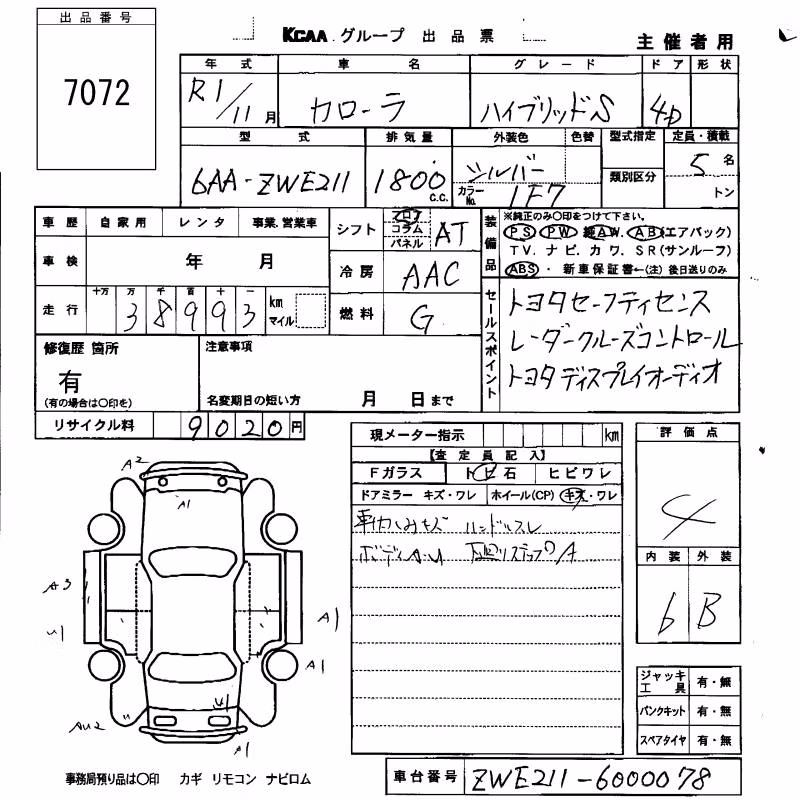 出品番号
7072
KCAA グループ 出品票
主催者用
年式 車名 グレード ドア 形状
R1/11月 カローラ ハイブリッドS 4D
型式 排気量 外装色 色替 型式指定 定員・積載
6AA-ZWE211 1800 C.C. シルバー 類別区分 5名
カラーNo. 1F7 トン
車歴 自家用 レンタ 事業.営業車
車検 年 月
走行 十万 万 千 百 十 一
38993 km マイル
シフト フロア コラム パネル AT
冷房 AAC
燃料 G
装備品 ※純正のみ○印をつけて下さい。
PS PW 純AW. AB(エアバック)
TV. ナビ. カワ. SR(サンルーフ)
ABS ・ 新車保証書←(注)後日送りのみ
セールスポイント
トヨタセーフティセンス
レーダークルーズコントロール
トヨタディスプレイオーディオ
修復歴 箇所 注意事項
有
(有の場合は○印を) 名変期日の短い方 月 日まで
リサイクル料 9020円
現メーター指示 km
【査定員記入】
Fガラス トビ石 ヒビワレ
ドアミラー キズ・ワレ ホイール(CP) キズ・ワレ
ハンドルスレ
評価点
4
内装 外装
6 B
A2
A1
A3
A1
A1
A1
ジャッキ工具 有・無
パンクキット 有・無
スペアタイヤ 有・無
事務局預り品は○印 カギ リモコン ナビロム
車台番号 ZWE211-6000078